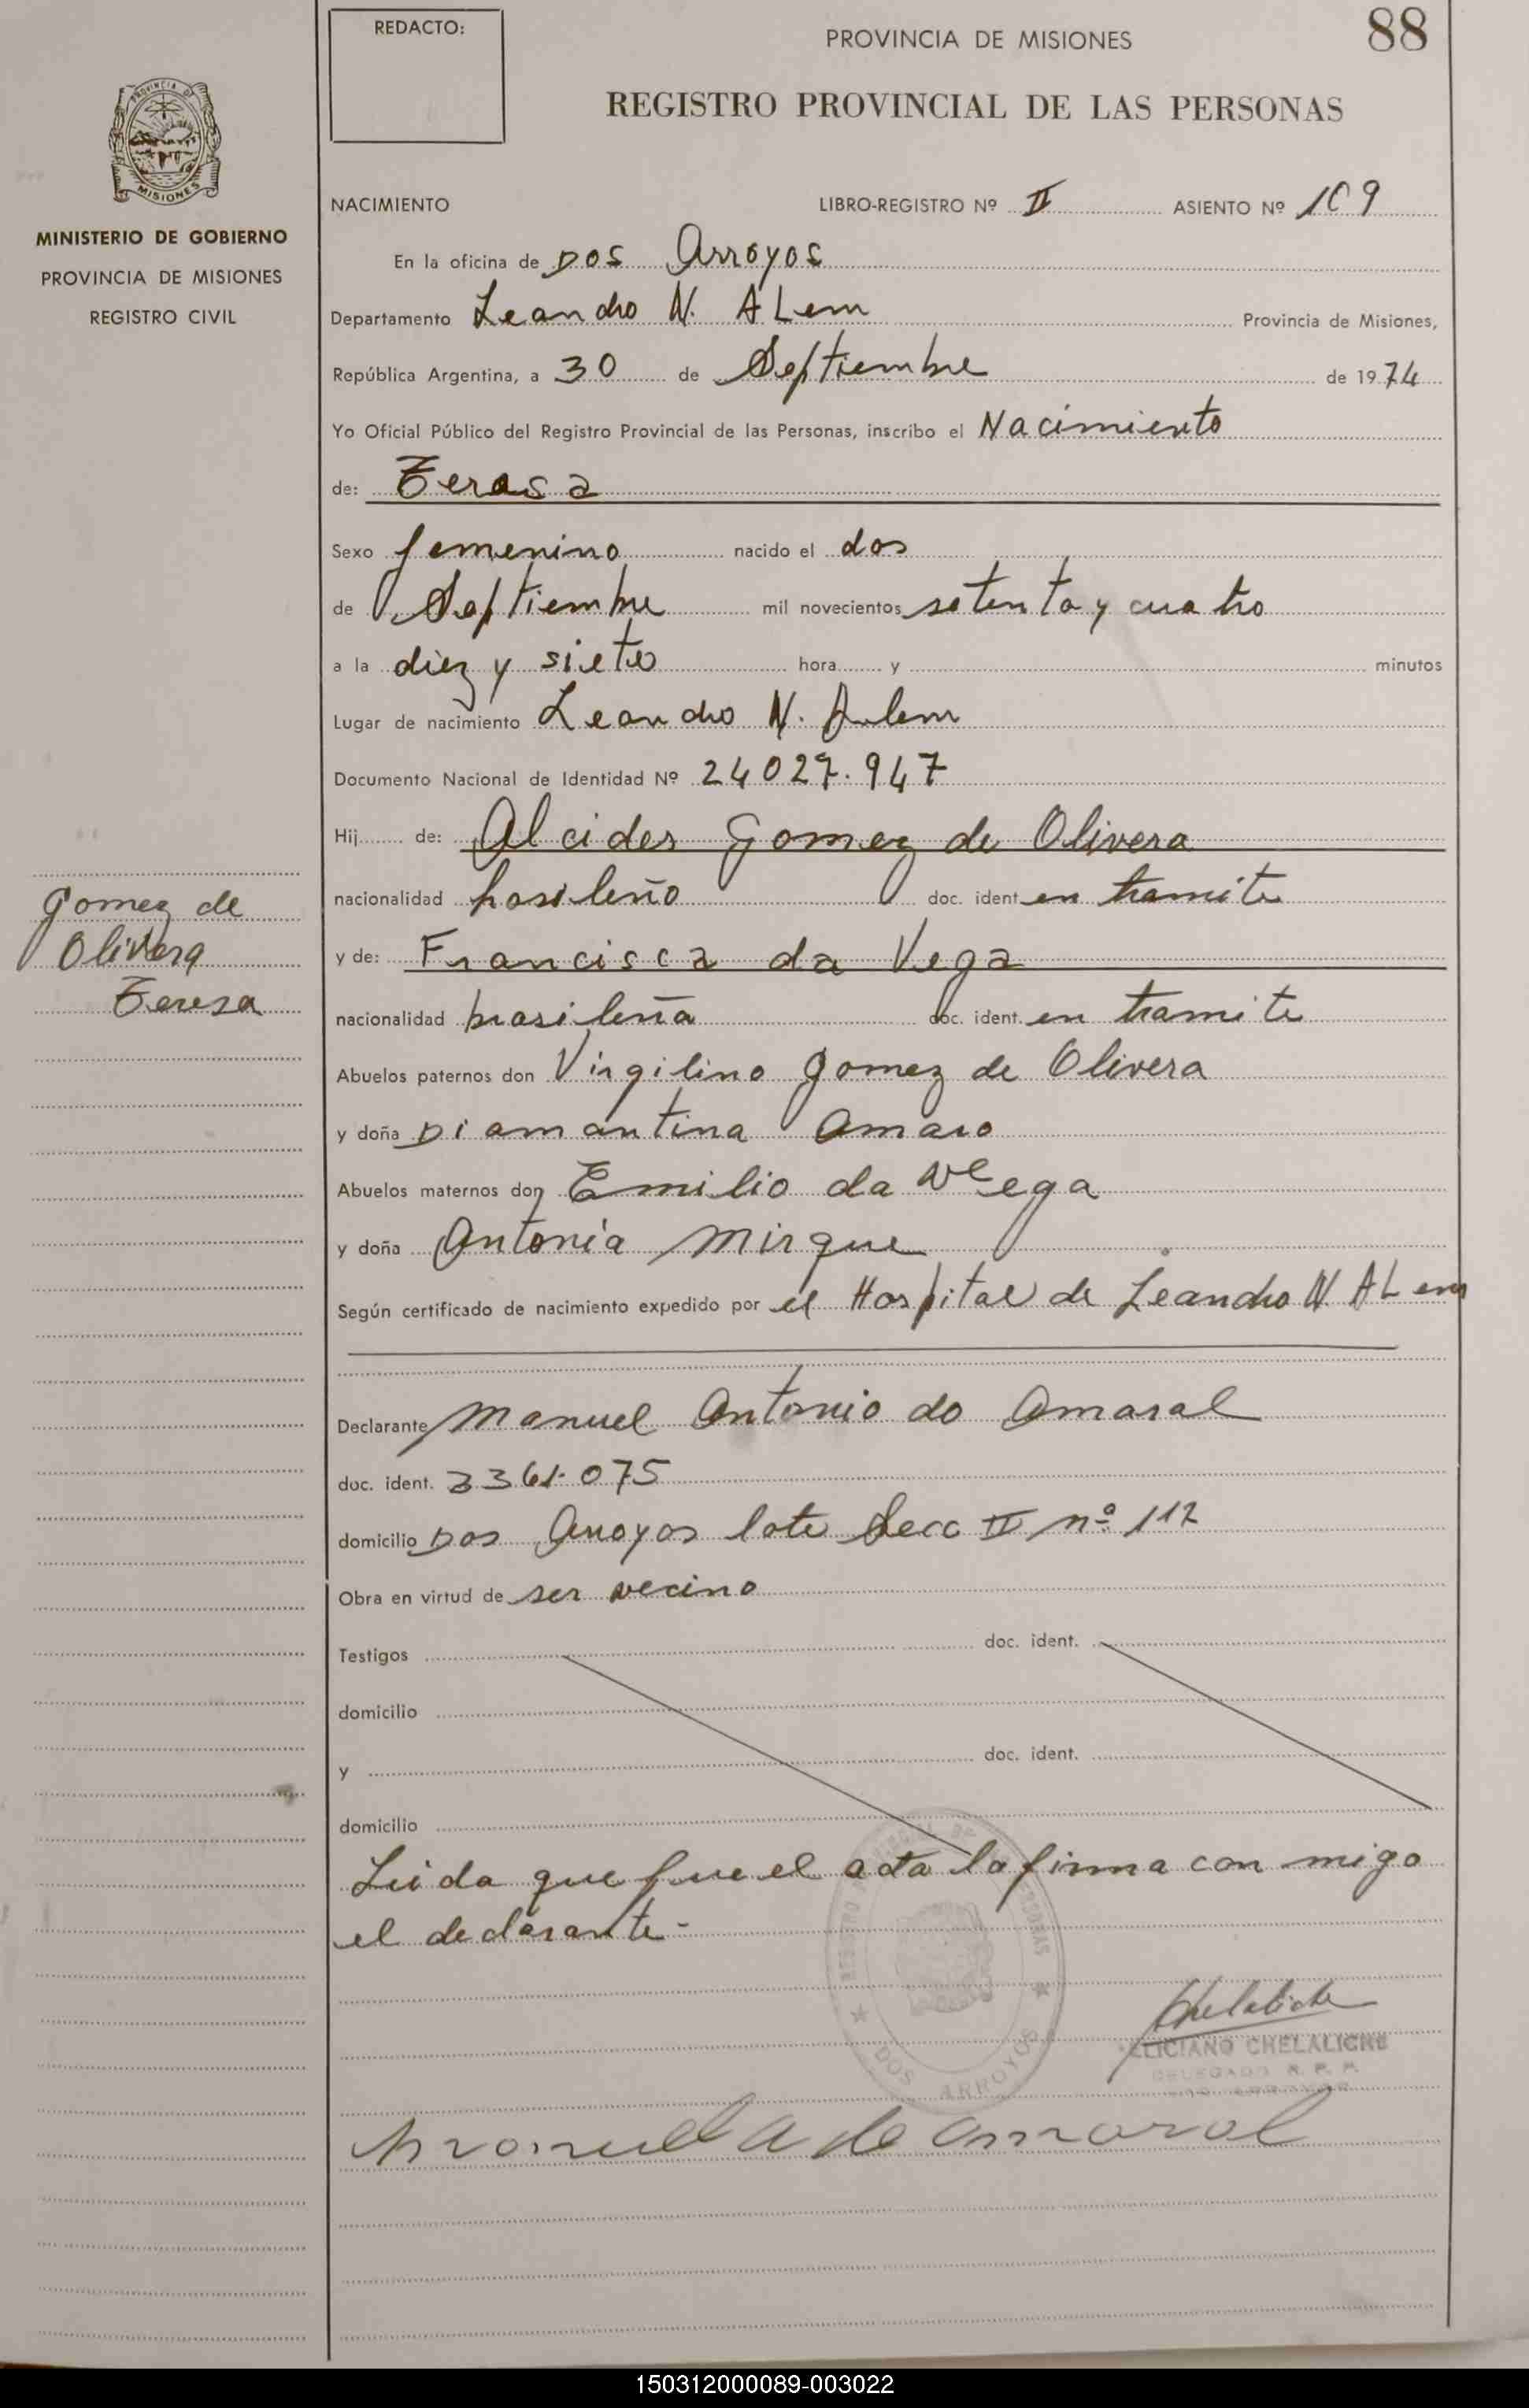 REDACTO:
PROVINCIA DE MISIONES
88
REGISTRO PROVINCIAL DE LAS PERSONAS
PROVINCIA DE
MISIONES
MINISTERIO DE GOBIERNO
PROVINCIA DE MISIONES
REGISTRO CIVIL
NACIMIENTO LIBRO-REGISTRO Nº II ASIENTO Nº 109
En la oficina de Dos Arroyos
Departamento Leandro N. ALem Provincia de Misiones,
República Argentina, a 30 de Septiembre de 1974
Yo Oficial Público del Registro Provincial de las Personas, inscribo el Nacimiento
de: Teresa
Sexo femenino nacido el dos
de Septiembre mil novecientos setenta y cuatro
a la diez y siete hora y minutos
Lugar de nacimiento Leandro N. Alem
Documento Nacional de Identidad Nº 24027.947
Hij de: Alcides Gomez de Olivera
nacionalidad brasileño doc. ident. en tramite
y de: Francisca da Vega
nacionalidad brasileña doc. ident. en tramite
Gomez de
Olivera
Teresa
Abuelos paternos don Virgilino Gomez de Olivera
y doña Diamantina Amaro
Abuelos maternos don Emilio da Vega
y doña Antonia Mirque
Según certificado de nacimiento expedido por el Hospital de Leandro N. ALem
Declarante Manuel Antonio do Amaral
doc. ident. 3361.075
domicilio Dos Arroyos lote Secc II nº 112
Obra en virtud de ser vecino
Testigos doc. ident.
domicilio
y doc. ident.
domicilio
Leida que fue el acta la firma con migo
el declarante-
DOS ARROYOS
Chelaliche
LICIANO CHELALICHE
DELEGADO R. P. P.
DOS ARROYOS
150312000089-003022